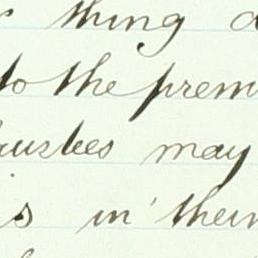 thing
to the prem
rustees may
is in their